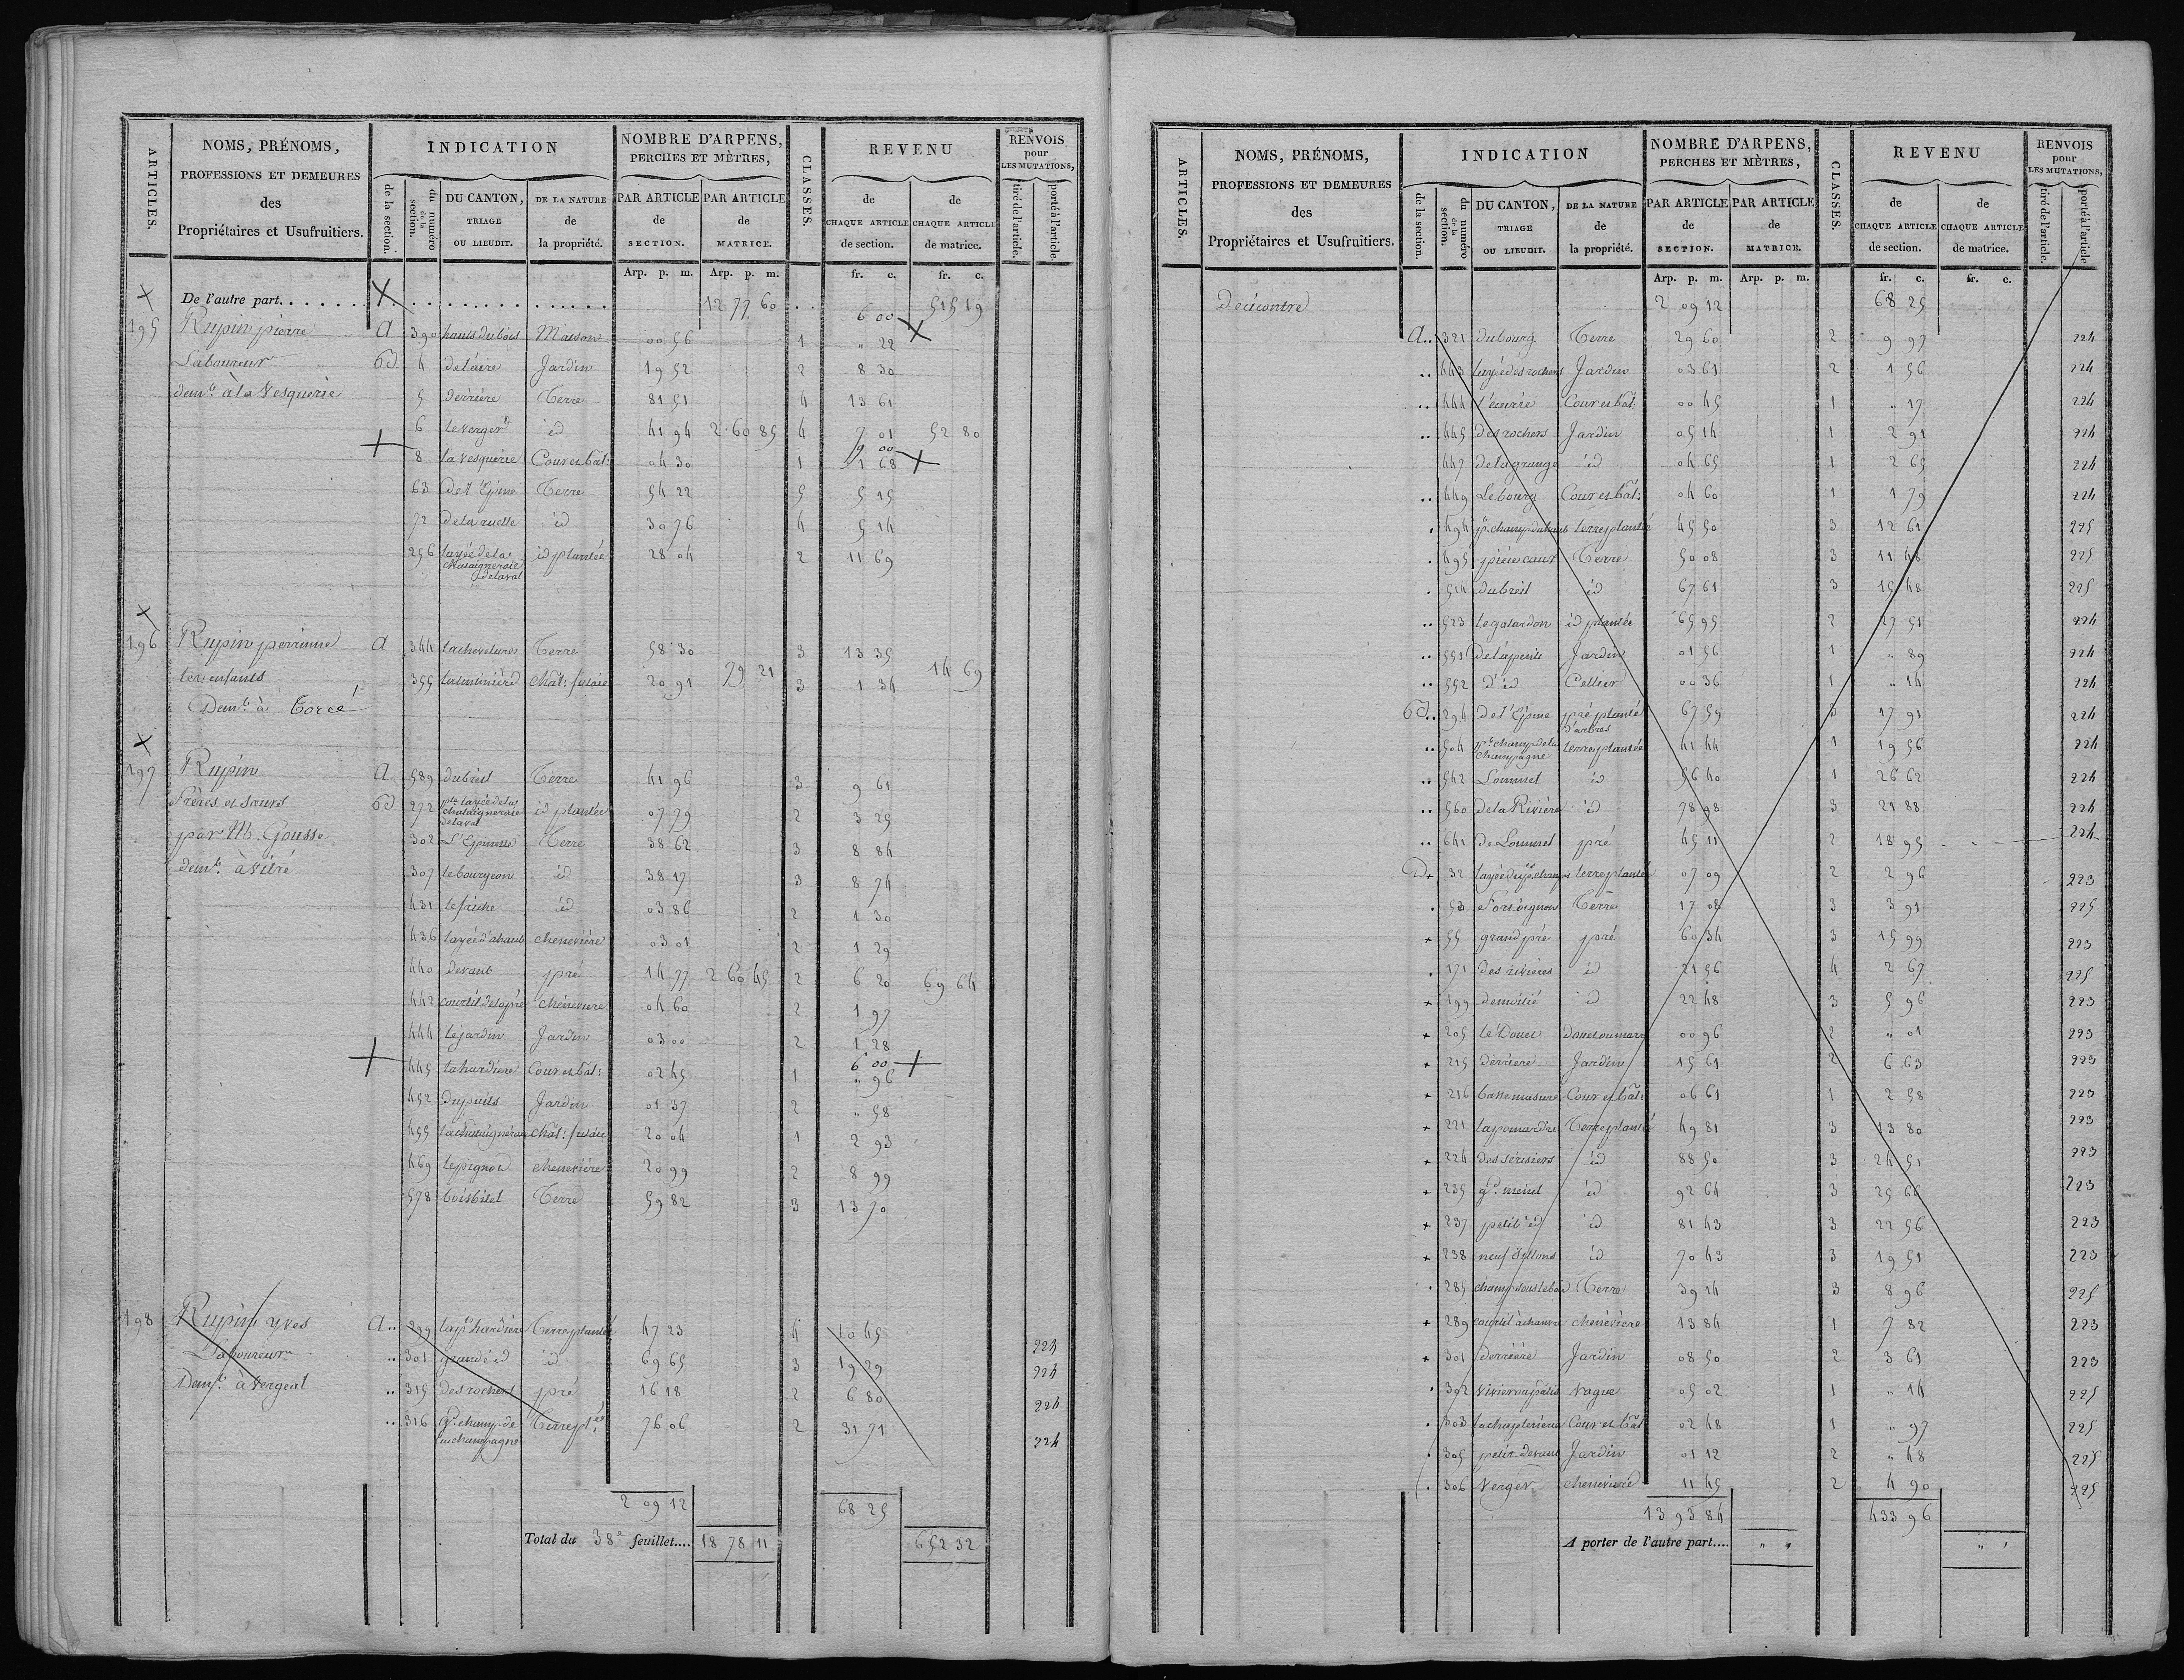 ARTICLES. NOMS, PRÉNOMS, PROFESSIONS ET DEMEURES des Propriétaires et Usufruitiers. INDICATION de la section. du numéro de la section. DU CANTON, TRIAGE OU LIEUDIT. DE LA NATURE de la propriété. NOMBRE D'ARPENS, PERCHES ET MÈTRES, PAR ARTICLE de SECTION. PAR ARTICLE de MATRICE. CLASSES. REVENU de CHAQUE ARTICLE de section. de CHAQUE ARTICLE de matrice. RENVOIS pour LES MUTATIONS, tiré de l'article. porté à l'article.
Arp. p. m. Arp. p. m. fr. c. fr. c.
De l'autre part. 12 77 60 515 19
6 00
195 Rupin pierre A 390 hauts du bois Maison 00 56 1 " 22
Laboureur Bd 4 de l'aire Jardin 19 52 2 8 30
demt à la Vesquerie 5 derrière Terre 81 51 4 13 61
6 le verger id 41 94 2 60 85 4 7 01 52 80
6 00
8 la Vesquerie Cour et bât: 04 30 1 1 68
63 de l'Epine Terre 54 22 5 5 15
72 de la ruelle id 30 76 4 5 14
256 layée de la chataigneraie delaval id plantée 28 04 2 11 69
196 Rupin perrinne A 344 la cheveture Terre 58 30 3 13 35
les enfants 355 Chât: futaie 20 91 79 21 3 1 34 14 69
Demt à Torcé
197 Rupin A 589 dubreil Terre 41 96 3 9 61
Frères et sœurs Bd 272 pte layée de la chataigneraie delaval id plantée 07 79 2 3 25
par M. Gousse 302 L'Epinette Terre 38 62 3 8 84
demt à Vitré 307 le bourgeon id 38 17 3 8 74
431 le friche id 03 86 2 1 30
436 layée d'ahaut chenevière 03 01 2 1 29
440 devant pré 14 77 2 60 45 2 6 20 69 64
442 courtil delapré chénevière 04 60 2 1 97
444 le jardin Jardin 03 00 2 1 28
6 00
445 la hardière Cour et bât: 02 45 1 " 96
452 du puits Jardin 01 37 2 " 58
455 la chataigneraie Chât: futaie 20 04 1 2 93
469 le pignon chenevière 20 99 2 8 99
578 bois bitel Terre 59 82 3 13 70
198 Rupin yves A 299 la pte hardière Terre plantée 47 23 4 10 45 224
Laboureur 301 grande id id 69 65 3 19 29 224
Demt à Vergeal 315 des rochers pré 16 18 2 6 80 224
316 Gd champ de la champagne Terre plée 76 06 2 31 71 224
2 09 12 68 25
Total du 38e feuillet.... 18 78 11 652 32
ARTICLES. NOMS, PRÉNOMS, PROFESSIONS ET DEMEURES des Propriétaires et Usufruitiers. INDICATION de la section. du numéro de la section. DU CANTON, TRIAGE OU LIEUDIT. DE LA NATURE de la propriété. NOMBRE D'ARPENS, PERCHES ET MÈTRES, PAR ARTICLE de SECTION. PAR ARTICLE de MATRICE. CLASSES. REVENU de CHAQUE ARTICLE de section. de CHAQUE ARTICLE de matrice. RENVOIS pour LES MUTATIONS, tiré de l'article. porté à l'article
Arp. p. m. Arp. p. m. fr. c. fr. c.
De ci contre 2 09 12 68 25
A 321 dubourg Terre 29 60 2 9 97 224
443 layée des rochers Jardin 03 61 2 1 56 224
444 l'écurie Cour et bât: 00 45 1 " 17 224
445 des rochers Jardin 05 14 1 2 91 224
447 de la grange id 04 65 1 2 65 224
449 Le bourg Cour et bât: 04 60 1 1 79 224
494 pt champ du haut terre plantée 45 50 3 12 61 225
495 Terre 50 08 3 11 48 225
514 dubreil id 67 61 3 15 48 225
523 le galardon id plantée 65 95 2 27 51 224
551 de la pente Jardin 01 56 1 " 89 224
552 d° id Cellier 00 36 1 " 14 224
Bd 294 de l'Epine pré planté d'arbres 67 59 3 17 91 224
504 pt champ de la Champagne terre plantée 41 44 1 19 56 224
542 Lommel id 56 40 1 26 62 224
560 de la Rivière id 78 98 3 21 88 224
641 de Lommel pré 45 11 2 18 95 224
D 32 layée du pt champs terre plantée 07 09 2 2 96 223
53 Terre 17 08 3 3 91 225
55 grand pré pré 60 34 3 15 99 223
171 des rivières id 21 56 4 2 67 225
199 demoitié id 22 48 3 5 96 223
205 le Douet douet ou mare 00 96 2 " 01 223
215 dérriere Jardin 15 61 2 6 63 223
216 basse masure Cour et bât: 06 61 1 2 58 223
221 Terre plantée 49 81 3 13 80 223
224 des sérisiers id 88 50 3 24 51 223
235 gd meinel id 92 64 3 25 66 223
237 petit id id 81 43 3 22 56 223
238 neuf sillons id 70 43 3 19 51 223
285 champ sous le bois Terre 39 14 3 8 96 225
289 courtil à chanvre chénévière 13 84 1 7 82 223
301 derrière Jardin 08 50 2 3 61 223
302 vivier ou patis Vague 05 02 1 " 14 225
303 Cour et bât 02 48 1 " 97 225
305 petit devant Jardin 01 12 2 " 48 225
306 Verger chenevière 11 45 2 4 90 225
13 93 84 433 96
A porter de l'autre part.... " " " "